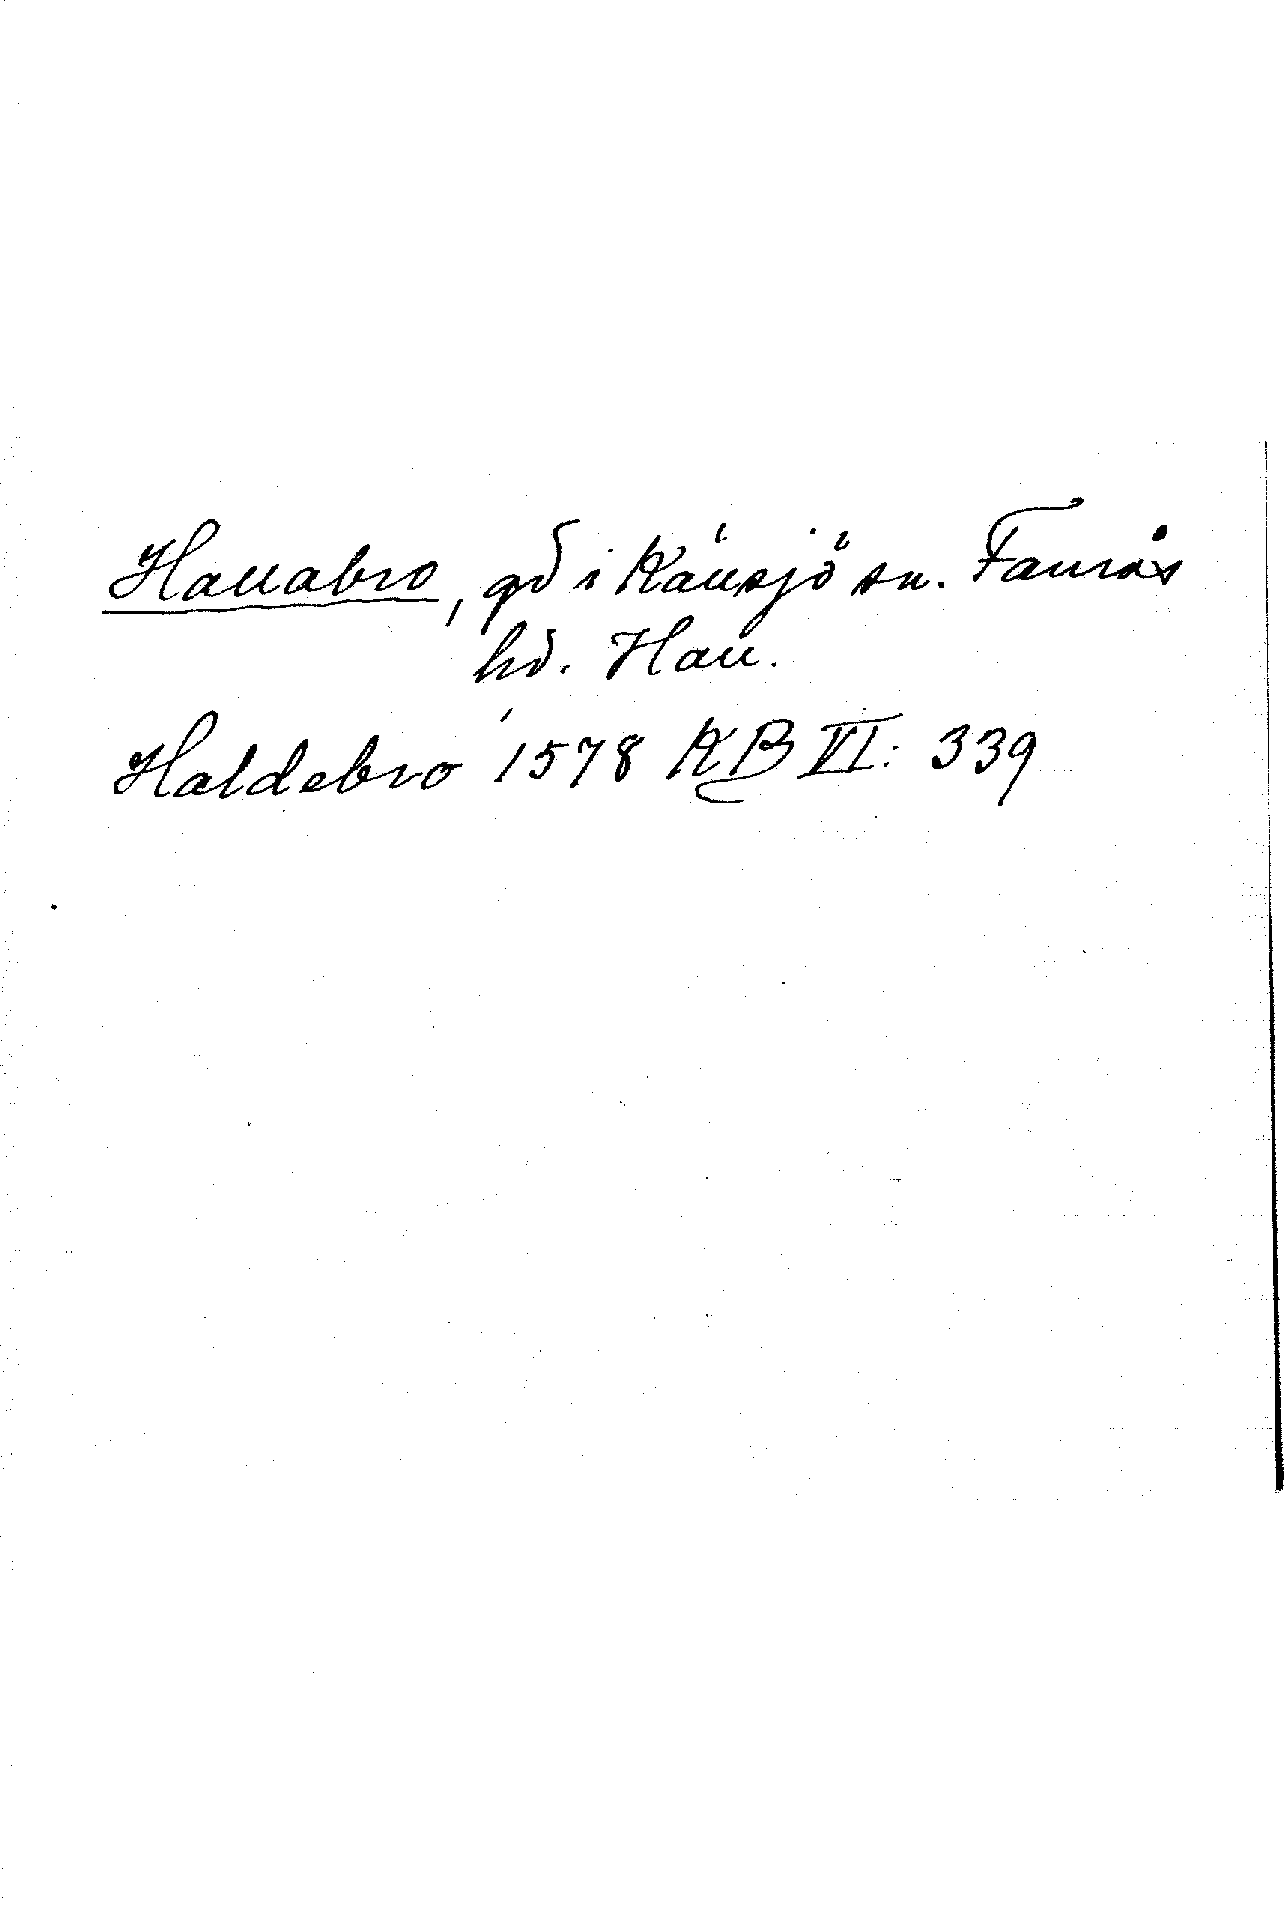 Hallabro, gd i Källsjö sn. Faurås
hd. Hall.
Haldebro 1578 KB VI: 339